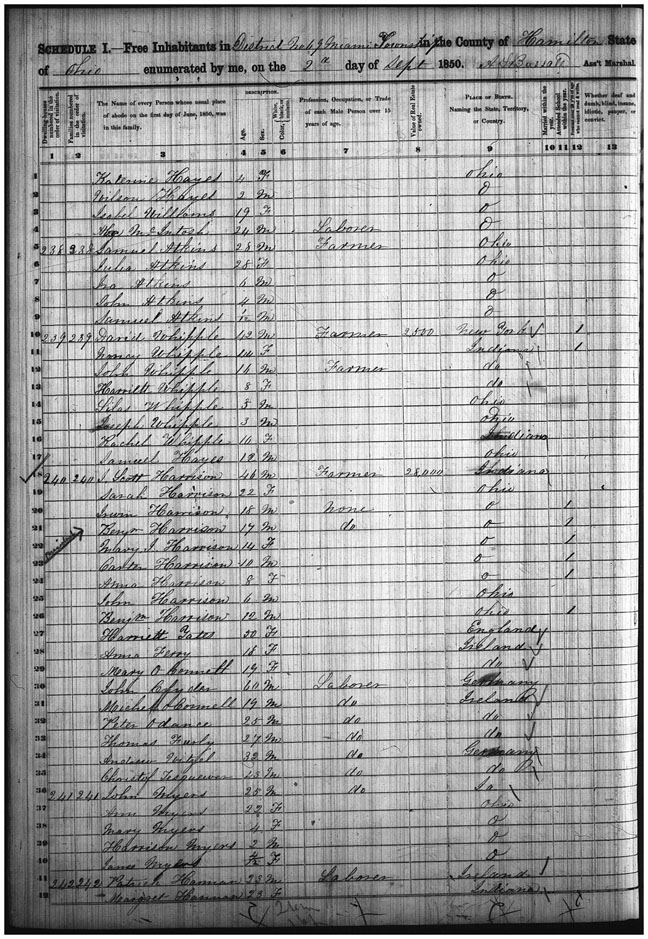 SCHEDULE I.—Free Inhabitants in District No 49 Miami Township in the County of Hamilton State
of Ohio enumerated by me, on the 2d day of Sept 1850. Ass't Marshal.
Dwelling-houses numbered in the order of visitation.
Families numbered in the order of visitation.
The Name of every Person whose usual place of abode on the first day of June, 1850, was in this family.
DESCRIPTION.
Age.
Sex.
Color,
Profession, Occupation, or Trade of each Male Person over 15 years of age.
Value of Real Estate owned.
PLACE OF BIRTH.
Naming the State, Territory, or Country.
Married within the year.
Attended School within the year.
Whether deaf and dumb, blind, insane, idiotic, pauper, or convict.
1 2 3 4 5 6 7 8 9 10 11 12 13
1 Katerine Hayes 4 F Ohio
2 Wilson Hayes 2 M O
3 Isabel Williams 19 F O
4 McIntosh 24 M Laborer O
5 238 238 Samuel Atkins 28 M Farmer Ohio
6 Julia Atkins 28 F Ohio
7 Ira Atkins 6 M O
8 John Atkins 4 M O
9 Samuel Atkins M O
10 239 239 David Whipple 42 M Farmer 2500 New York 1
11 Nancy Whipple 14 F Indiana 1
12 John Whipple 16 M Farmer do
13 Harriett Whipple 8 F do
14 Silas Whipple 5 M Ohio
15 Joseph Whipple 3 M Ohio
16 Rachel Whipple 10 F Indiana
17 Samuel Hayes 12 M Ohio
18 240 240 J. Scott Harrison 46 M Farmer 28,000 Indiana
19 Sarah Harrison 22 F Ohio
20 Irwin Harrison 18 M None O 1
21 Benjn Harrison 17 M do O 1
22 Mary J. Harrison 14 F O 1
23 Carter Harrison 10 M O 1
24 Anna Harrison 8 F O 1
25 John Harrison 6 M Ohio
26 Benjn Harrison 12 M Ohio 1
27 Harriett Gates 30 F England
28 Anna Ferry 18 F Ireland
29 Mary O Connell 19 F do
30 John 60 M Laborer Germany
31 Michael O Connell 19 M do Ireland
32 Peter Odance 25 M do do
33 Thomas Furly 27 M do do
34 Andrew 32 M do Germany
35 M do do
36 241 241 John Myers 25 M do
37 Ann Myers 22 F Ohio
38 Mary Myers 4 F O
39 Harrison Myers 2 M O
40 Myers F O
41 242 242 Patrick Hannan 23 M Laborer Ireland
42 Margret Hannan 23 F Indiana